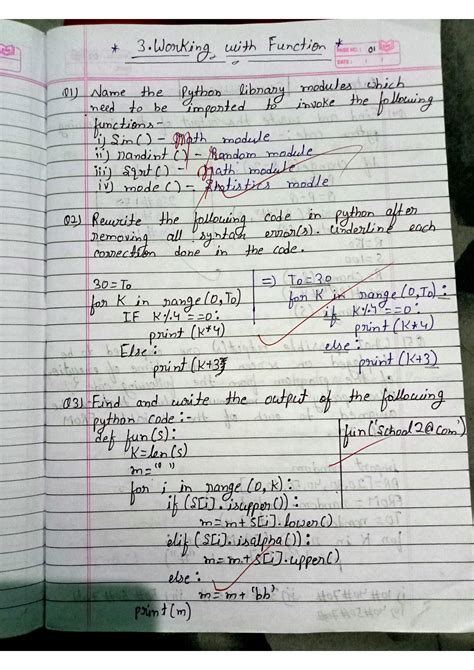 * 3. Working with Function *
PAGE NO.: 01
DATE: / /
Q1) Name the Python library modules which
need to be imported to invoke the following
functions -
i) Sin() - Math module
ii) randint() - Random module
iii) Sqrt() - Math module
iv) mode() - Statistics modle
Q2) Rewrite the following code in python after
removing all syntax error(s). Underline each
correction done in the code.
30=To
for K in range(0,To)
IF K%4==0:
print(K*4)
Else:
print(K+3)
=> To=30
for K in range(0,To):
if K%4==0:
print(K*4)
else:
print(K+3)
Q3) Find and write the output of the following
python code:-
def fun(s):
K=len(s)
m=" "
for i in range(0,K):
if (S[i].isupper()):
m=m+S[i].lower()
elif (S[i].isalpha()):
m=m+S[i].upper()
else:
m=m+'bb'
print(m)
fun('School2@Com')